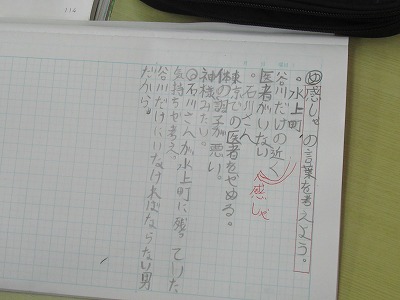 め感しゃの言葉を考えよう。
・水上町
谷川だけの近く
医者がいない
・石川さん
東京での医者をやめる。
体の調子が悪い。
神様みたい。
石川さんが水上町に残っていた
気持ちを考え、
谷川だけにいなければならない男
だから。
感しゃ
114